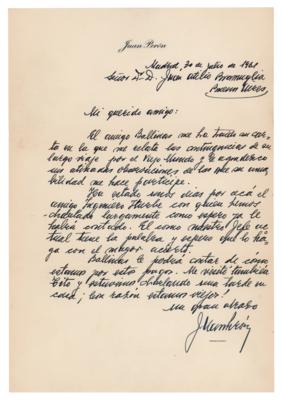 Juan Perón
Madrid, 30 de julio de 1961
Señor Dr. D. Juan Atilio Bramuglia
Buenos Aires
Mi querido amigo:
El amigo Ballinas me ha traído su car-
ta en la que me relata las contingencias de su
largo viaje por el Viejo Mundo y le agradezco
sus atinadas observaciones de las que su ama-
bilidad me hace partícipe.
Ha estado unos días por acá el
amigo Ingeniero Iturbe con quien hemos
charlado largamente como espero ya le
habrá contado. El como nuestro Jefe ac-
tual tiene la palabra y espero que lo ha-
ga con el mayor acierto.
Ballinas le podrá contar de como
estamos por estos pagos. Me visitó también
y estuvimos charlando una tarde en
casa; con razón estamos viejos.
Un gran abrazo